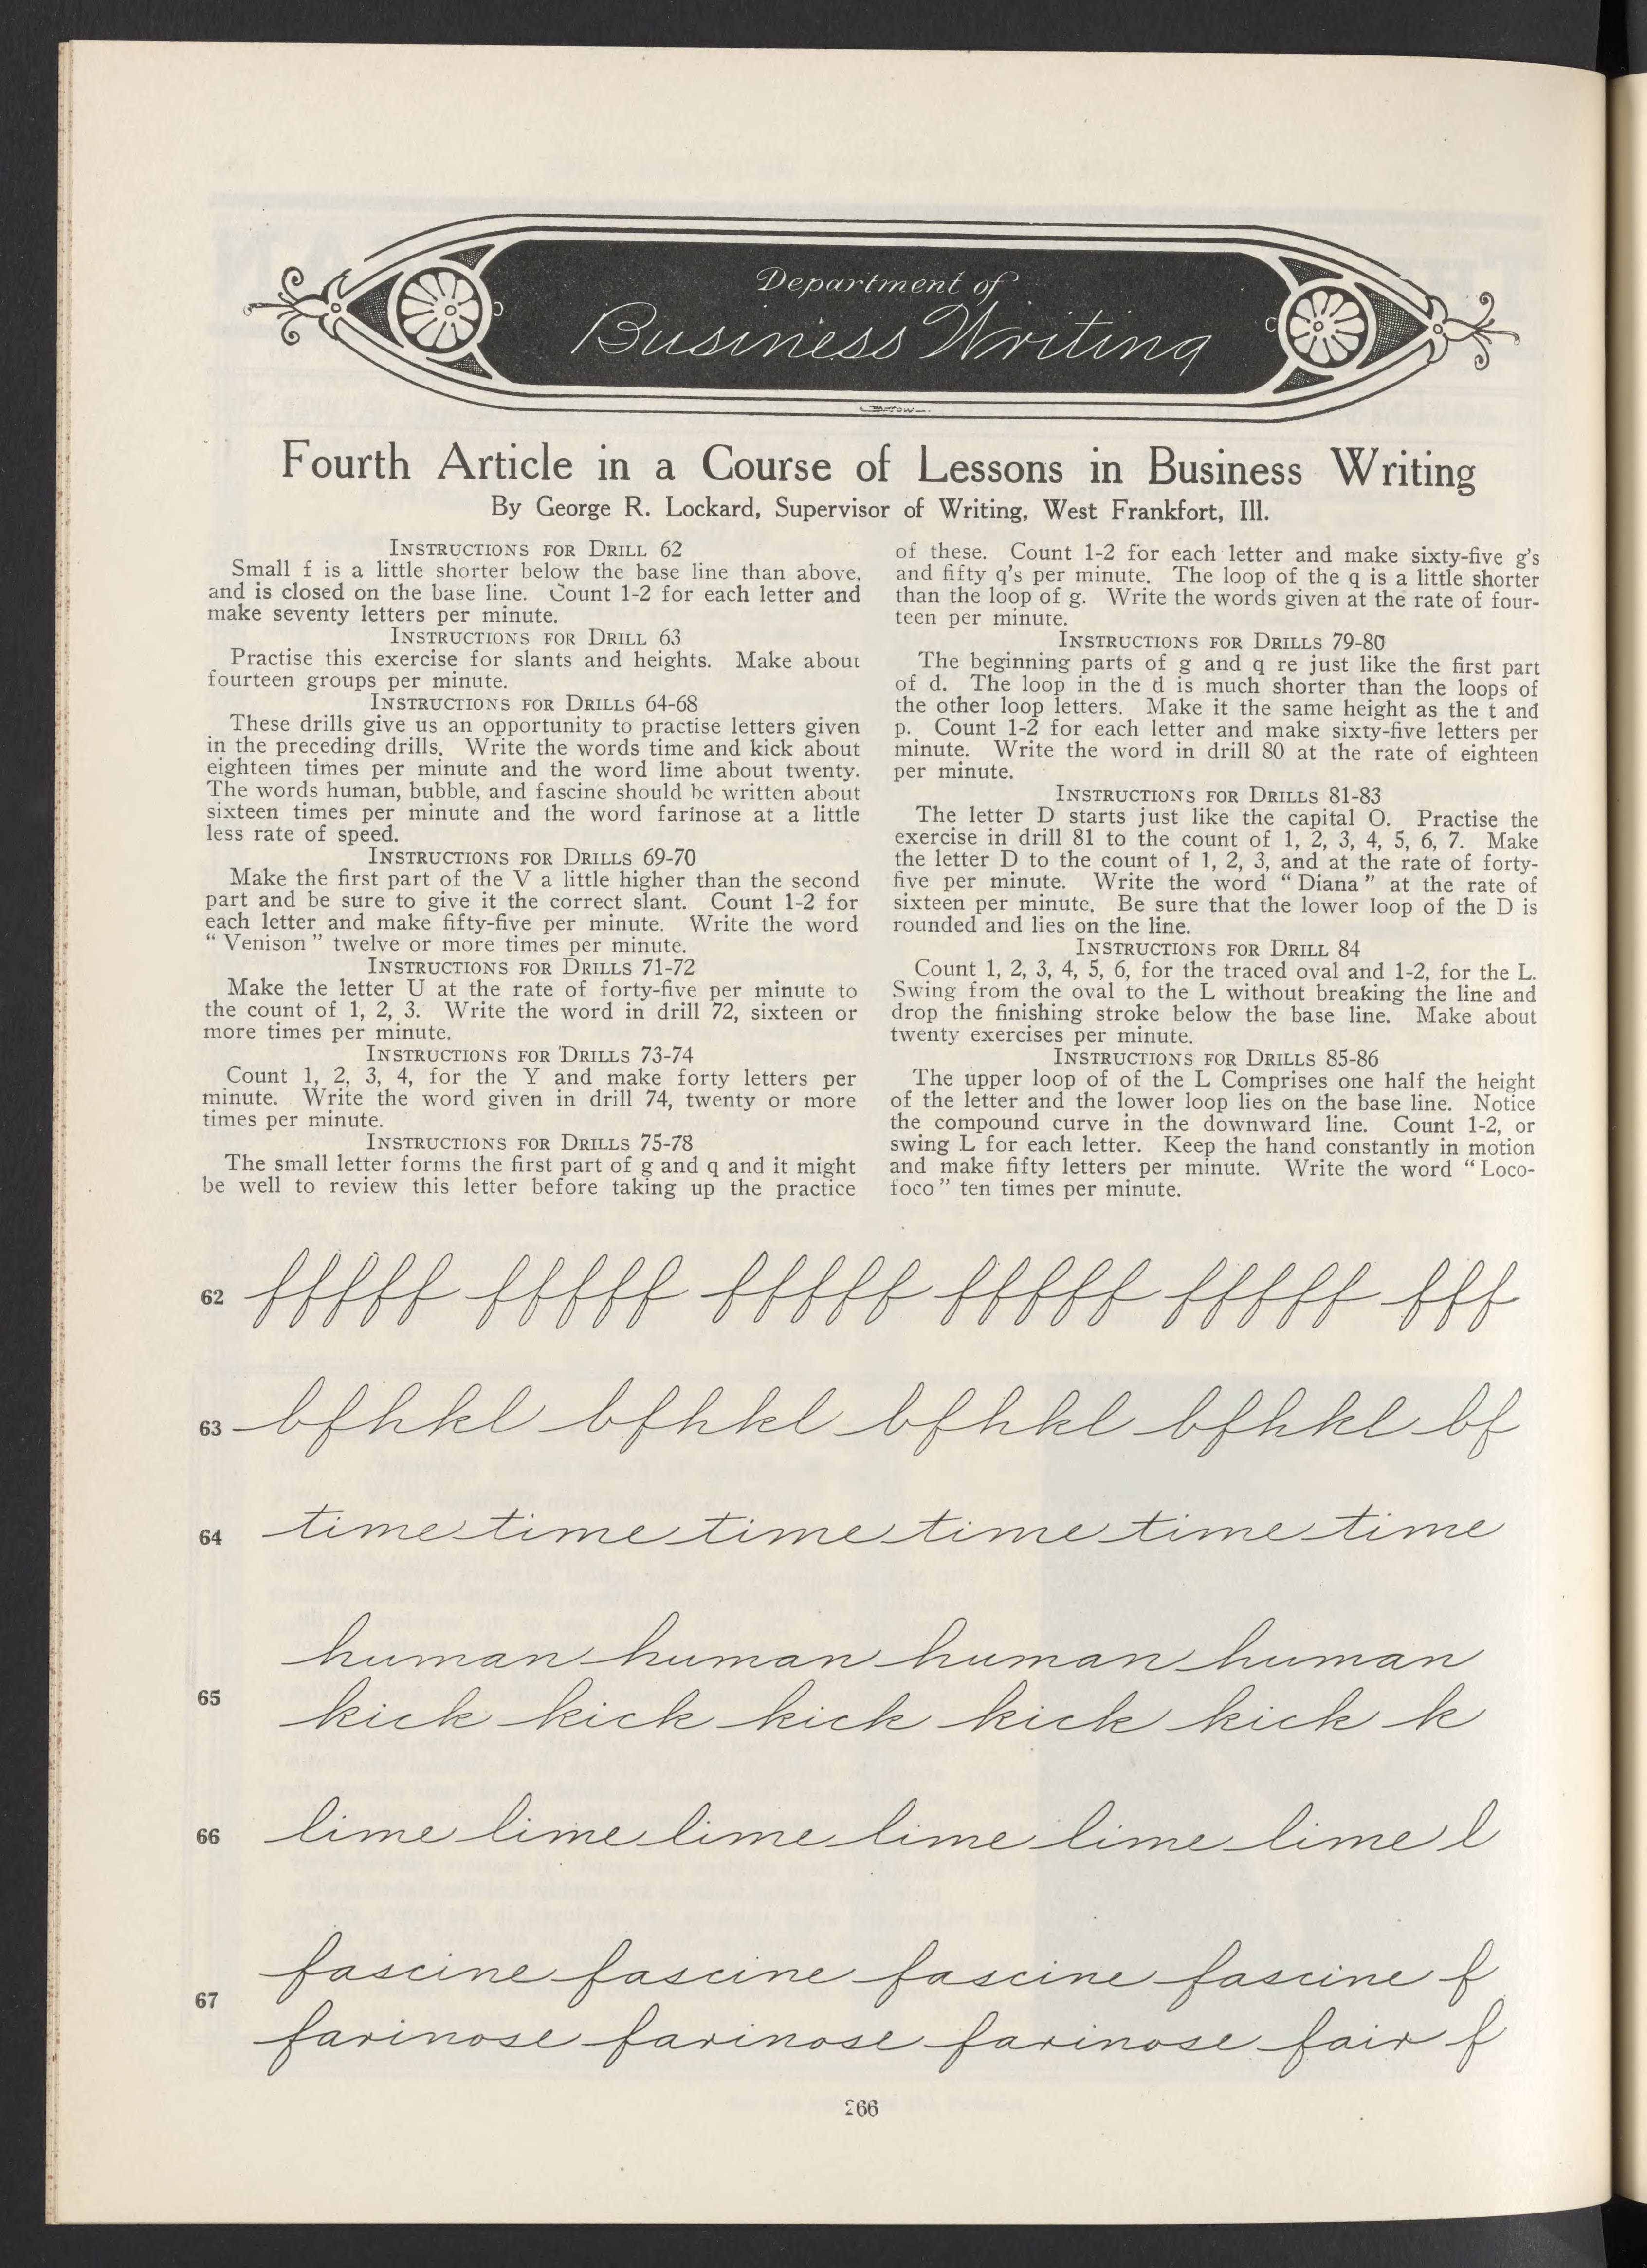 Department of
Business Writing
Fourth Article in a Course of Lessons in Business Writing
By George R. Lockard, Supervisor of Writing, West Frankfort, Ill.
INSTRUCTIONS FOR DRILL 62
Small f is a little shorter below the base line than above,
and is closed on the base line. Count 1-2 for each letter and
make seventy letters per minute.
INSTRUCTIONS FOR DRILL 63
Practise this exercise for slants and heights. Make about
fourteen groups per minute.
INSTRUCTIONS FOR DRILLS 64-68
These drills give us an opportunity to practise letters given
in the preceding drills. Write the words time and kick about
eighteen times per minute and the word lime about twenty.
The words human, bubble, and fascine should be written about
sixteen times per minute and the word farinose at a little
less rate of speed.
INSTRUCTIONS FOR DRILLS 69-70
Make the first part of the V a little higher than the second
part and be sure to give it the correct slant. Count 1-2 for
each letter and make fifty-five per minute. Write the word
“ Venison ” twelve or more times per minute.
INSTRUCTIONS FOR DRILLS 71-72
Make the letter U at the rate of forty-five per minute to
the count of 1, 2, 3. Write the word in drill 72, sixteen or
more times per minute.
INSTRUCTIONS FOR DRILLS 73-74
Count 1, 2, 3, 4, for the Y and make forty letters per
minute. Write the word given in drill 74, twenty or more
times per minute.
INSTRUCTIONS FOR DRILLS 75-78
The small letter forms the first part of g and q and it might
be well to review this letter before taking up the practice
of these. Count 1-2 for each letter and make sixty-five g's
and fifty q's per minute. The loop of the q is a little shorter
than the loop of g. Write the words given at the rate of four-
teen per minute.
INSTRUCTIONS FOR DRILLS 79-80
The beginning parts of g and q re just like the first part
of d. The loop in the d is much shorter than the loops of
the other loop letters. Make it the same height as the t and
p. Count 1-2 for each letter and make sixty-five letters per
minute. Write the word in drill 80 at the rate of eighteen
per minute.
INSTRUCTIONS FOR DRILLS 81-83
The letter D starts just like the capital O. Practise the
exercise in drill 81 to the count of 1, 2, 3, 4, 5, 6, 7. Make
the letter D to the count of 1, 2, 3, and at the rate of forty-
five per minute. Write the word “ Diana ” at the rate of
sixteen per minute. Be sure that the lower loop of the D is
rounded and lies on the line.
INSTRUCTIONS FOR DRILL 84
Count 1, 2, 3, 4, 5, 6, for the traced oval and 1-2, for the L.
Swing from the oval to the L without breaking the line and
drop the finishing stroke below the base line. Make about
twenty exercises per minute.
INSTRUCTIONS FOR DRILLS 85-86
The upper loop of of the L Comprises one half the height
of the letter and the lower loop lies on the base line. Notice
the compound curve in the downward line. Count 1-2, or
swing L for each letter. Keep the hand constantly in motion
and make fifty letters per minute. Write the word “ Loco-
foco ” ten times per minute.
62 fffff fffff fffff fffff fffff fff
63 bfhkl bfhkl bfhkl bfhkl bf
64 time time time time time time
human human human human
65
kick kick kick kick kick k
66 lime lime lime lime lime lime l
fascine fascine fascine fascine f
67
farinose farinose farinose fair f
266